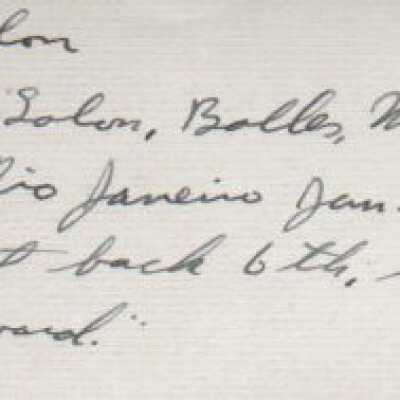 lon
"Solon, Balles, M
Rio Janeiro Jan.
t back 6th,
ward."